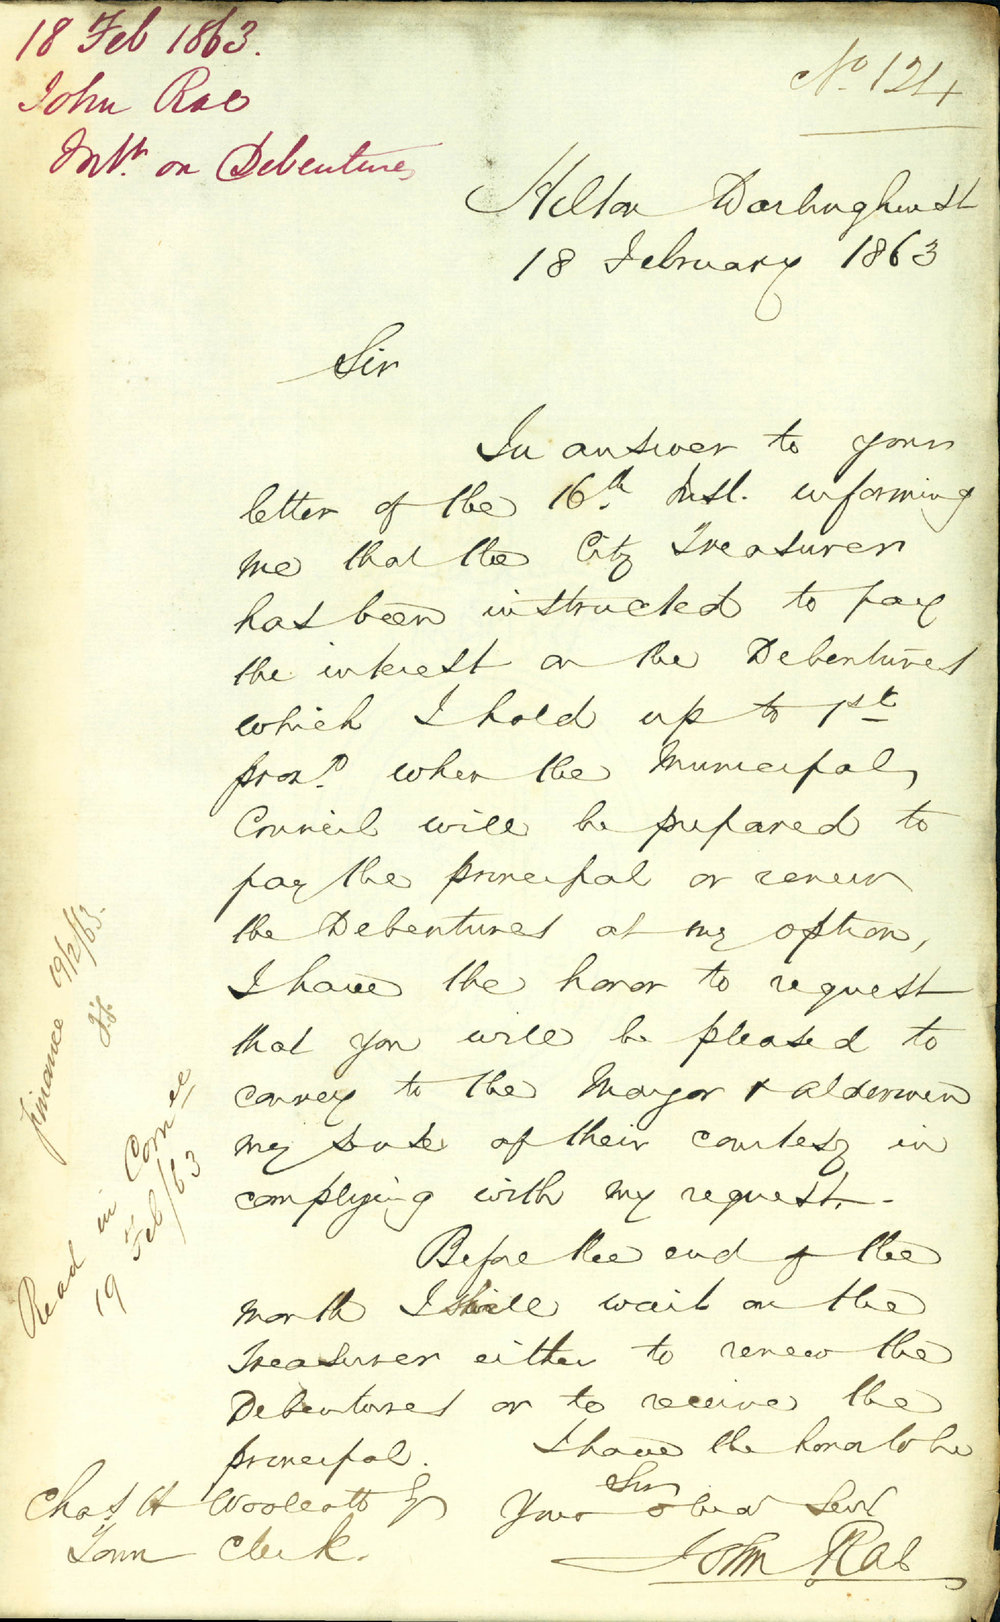 18 Feb 1863.
John Rae
Intt. on Debentures
No. 124
Hilton Darlinghurst
18 February 1863
Sir
In answer to your
letter of the 16th Inst. informing
me that the City Treasurer
has been instructed to pay
the interest on the Debentures
which I hold up to 1st
proxo. when the Municipal
Council will be prepared to
pay the principal or renew
the Debentures at my option,
I have the honor to request
that you will be pleased to
convey to the Mayor & Aldermen
my sense of their courtesy in
complying with my request.
Before the end of the
month I shall wait on the
Treasurer either to renew the
Debentures or to receive the
principal. I have the honor to be
Sir
Your obed Servt
John Rae
Chas H Woolcott Esq
Town Clerk.
Finance 19/2/63.
Read in Comee
19 Feb/63